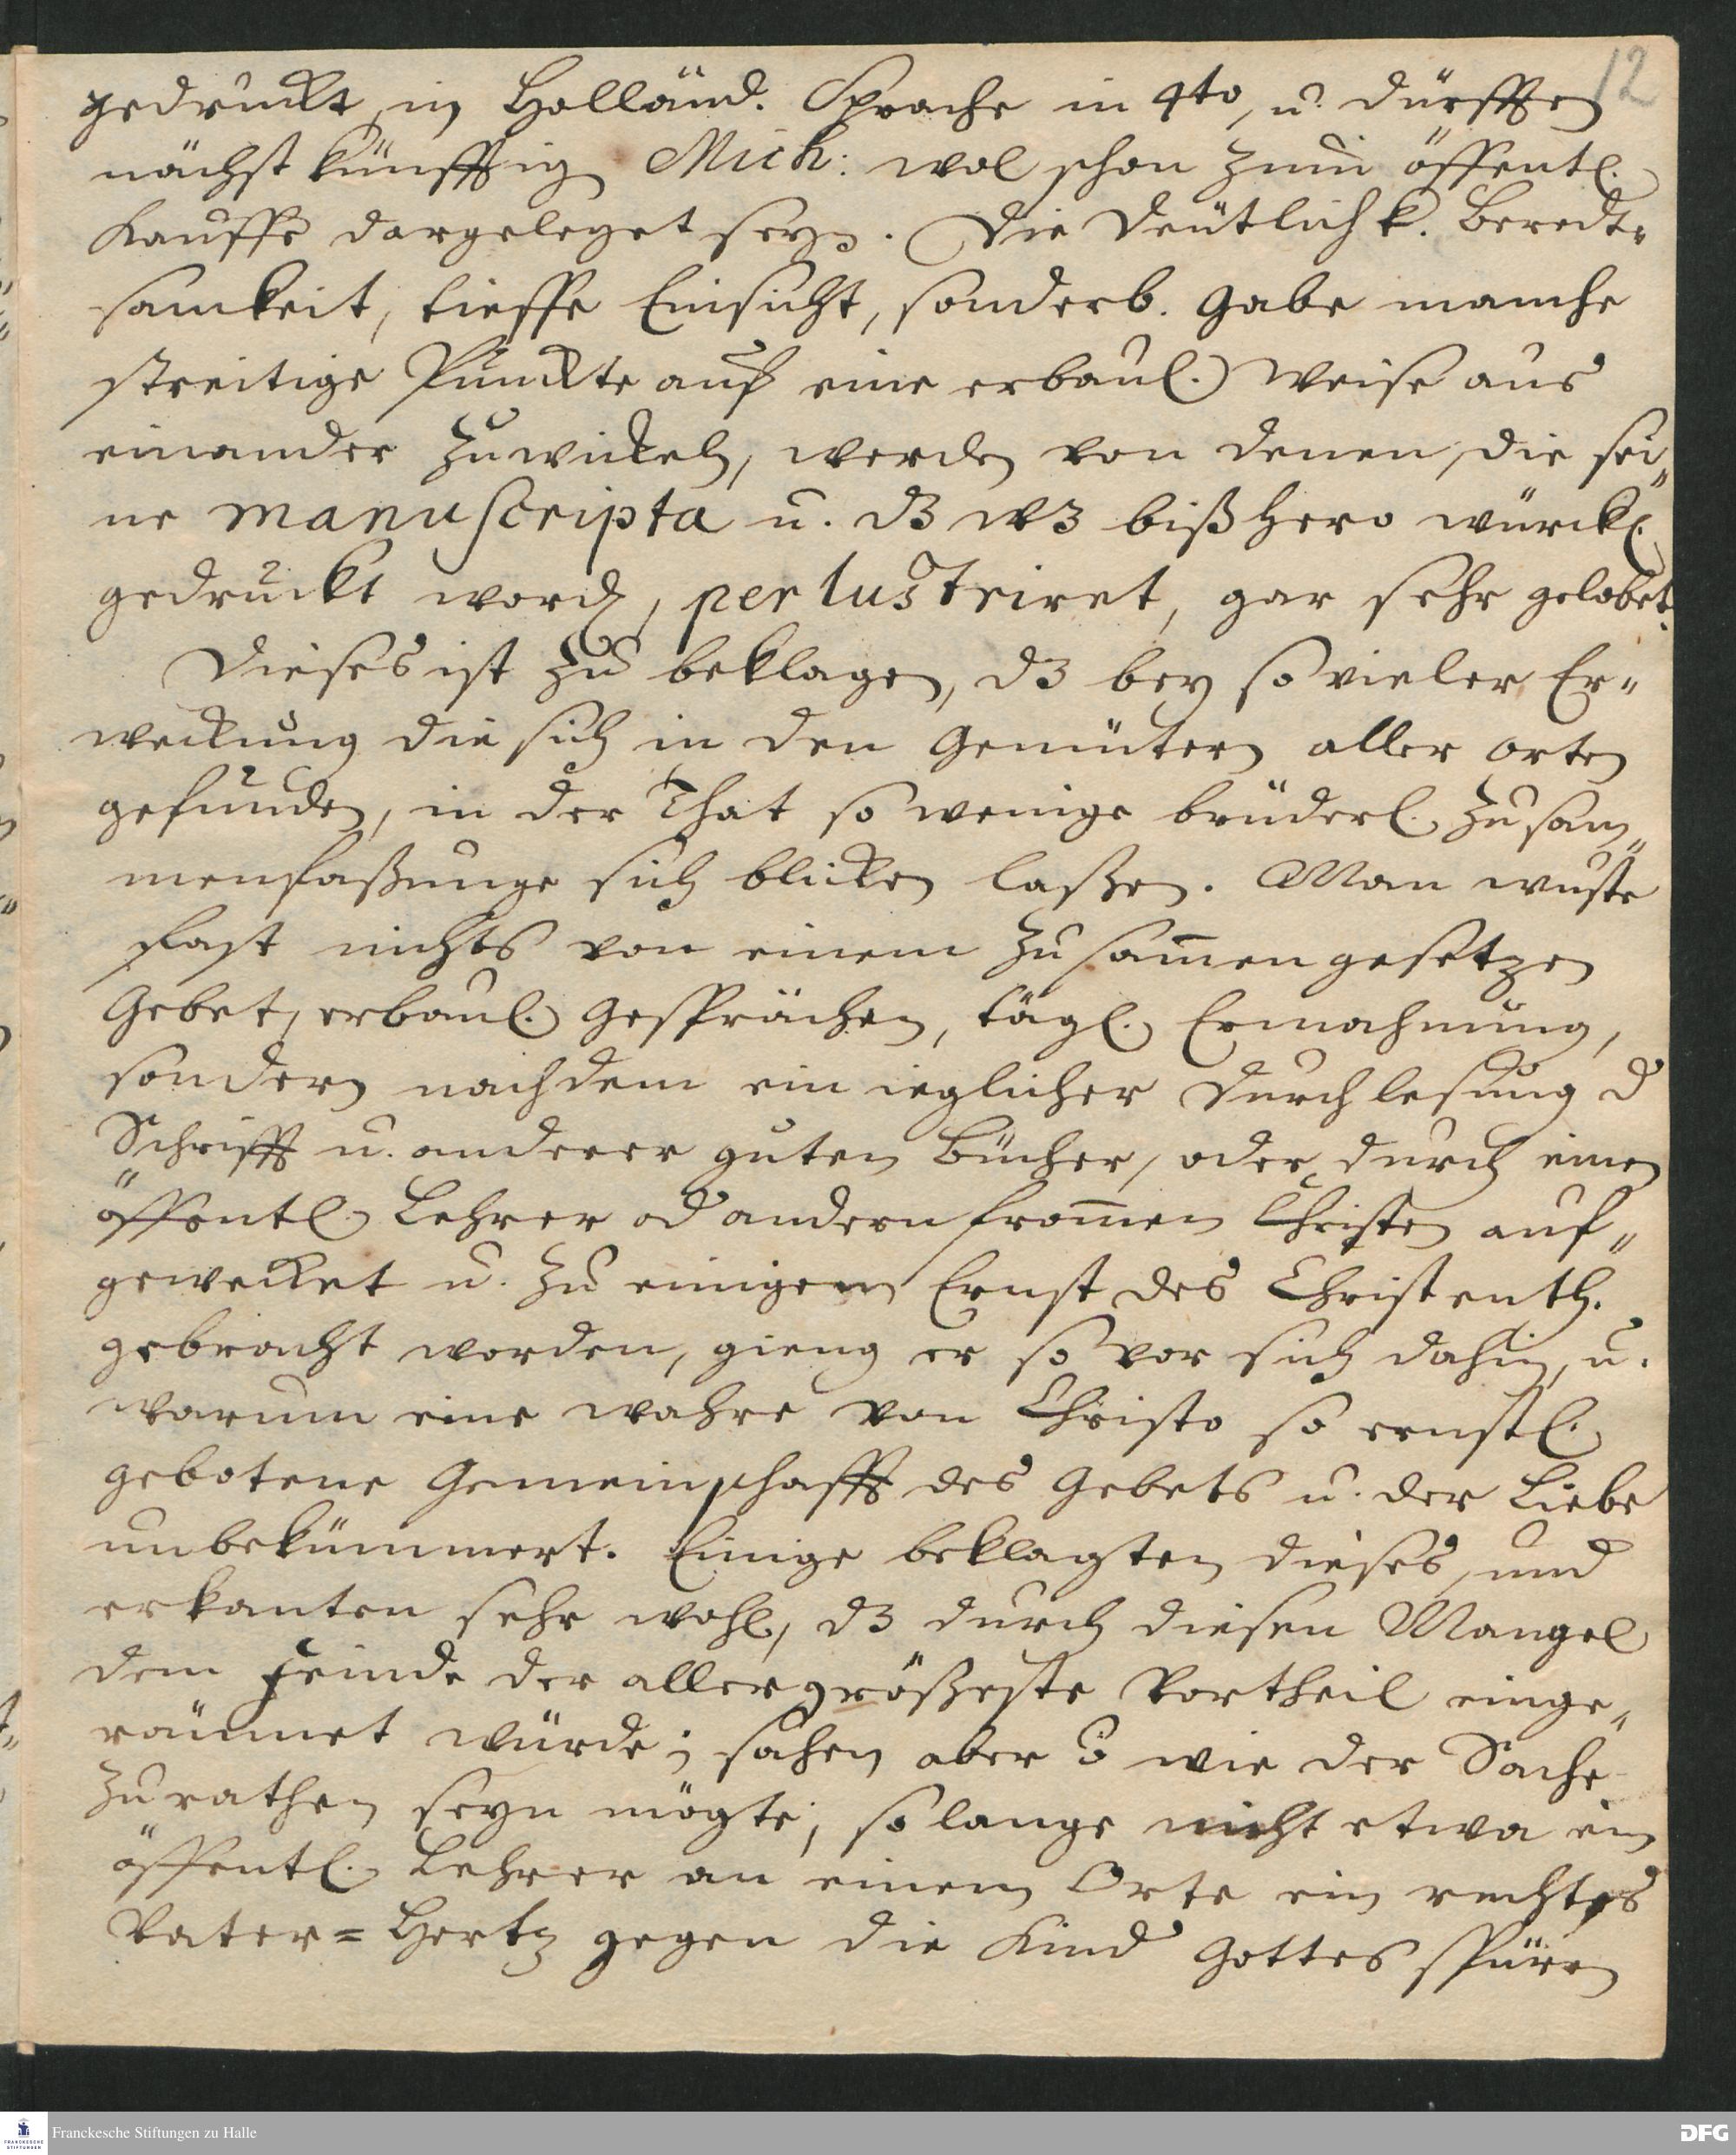 12
gedruckt in Holländ. Sprache in 4to, u. dürfften
nächst künfftig Mich: wol schon zum öffentl.
Kauffe dargeleget seyn. Die Deutlichk. Beredt-
samkeit, tieffe Einsicht, sonderb. Gabe manche
streitige Punckte auf eine erbaul. Weise aus
einander zu wickeln, werden von denen, die sei-
ne manuscripta u. dz wz bißhero würckl.
gedruckt word, perlustriret, gar sehr gelobet.
Dieses ist zu beklagen, dz bey so vieler Er-
weckung die sich in den Gemütern aller Orten
gefunden, in der That so wenige brüderl. Zusam-
menfaßunge sich blicken laßen. Man wuste
fast nichts von einem zusam̄engesetzen
Gebet, erbaul. Gesprächen, tägl. Ermahnung,
sondern nachdem ein ieglicher durch lesung d
Schrifft u. anderer guten Bücher, oder durch einen
öffentl. Lehrer od andern from̄en Christen auf-
gewecket u. zu einigem Ernst des Christenth.
gebracht worden, gieng er so vor sich dahin, u.
warum eine wahre von Christo so ernstl.
gebotene Gemeinschafft des Gebets u. der Liebe
unbekümmert. Einige beklagten dieses, und
erkanten sehr wohl, dz durch diesen Mangel
dem Feinde der allergrößeste Vortheil einge-
räumet würde; sahen aber wie der Sache
zu rathen seyn mögte, so lange nicht etwa ein
öffentl. Lehrer an einem Orte ein rechtes
Vater=Hertz gegen die Kind Gottes spüren
Franckesche Stiftungen zu Halle
DFG